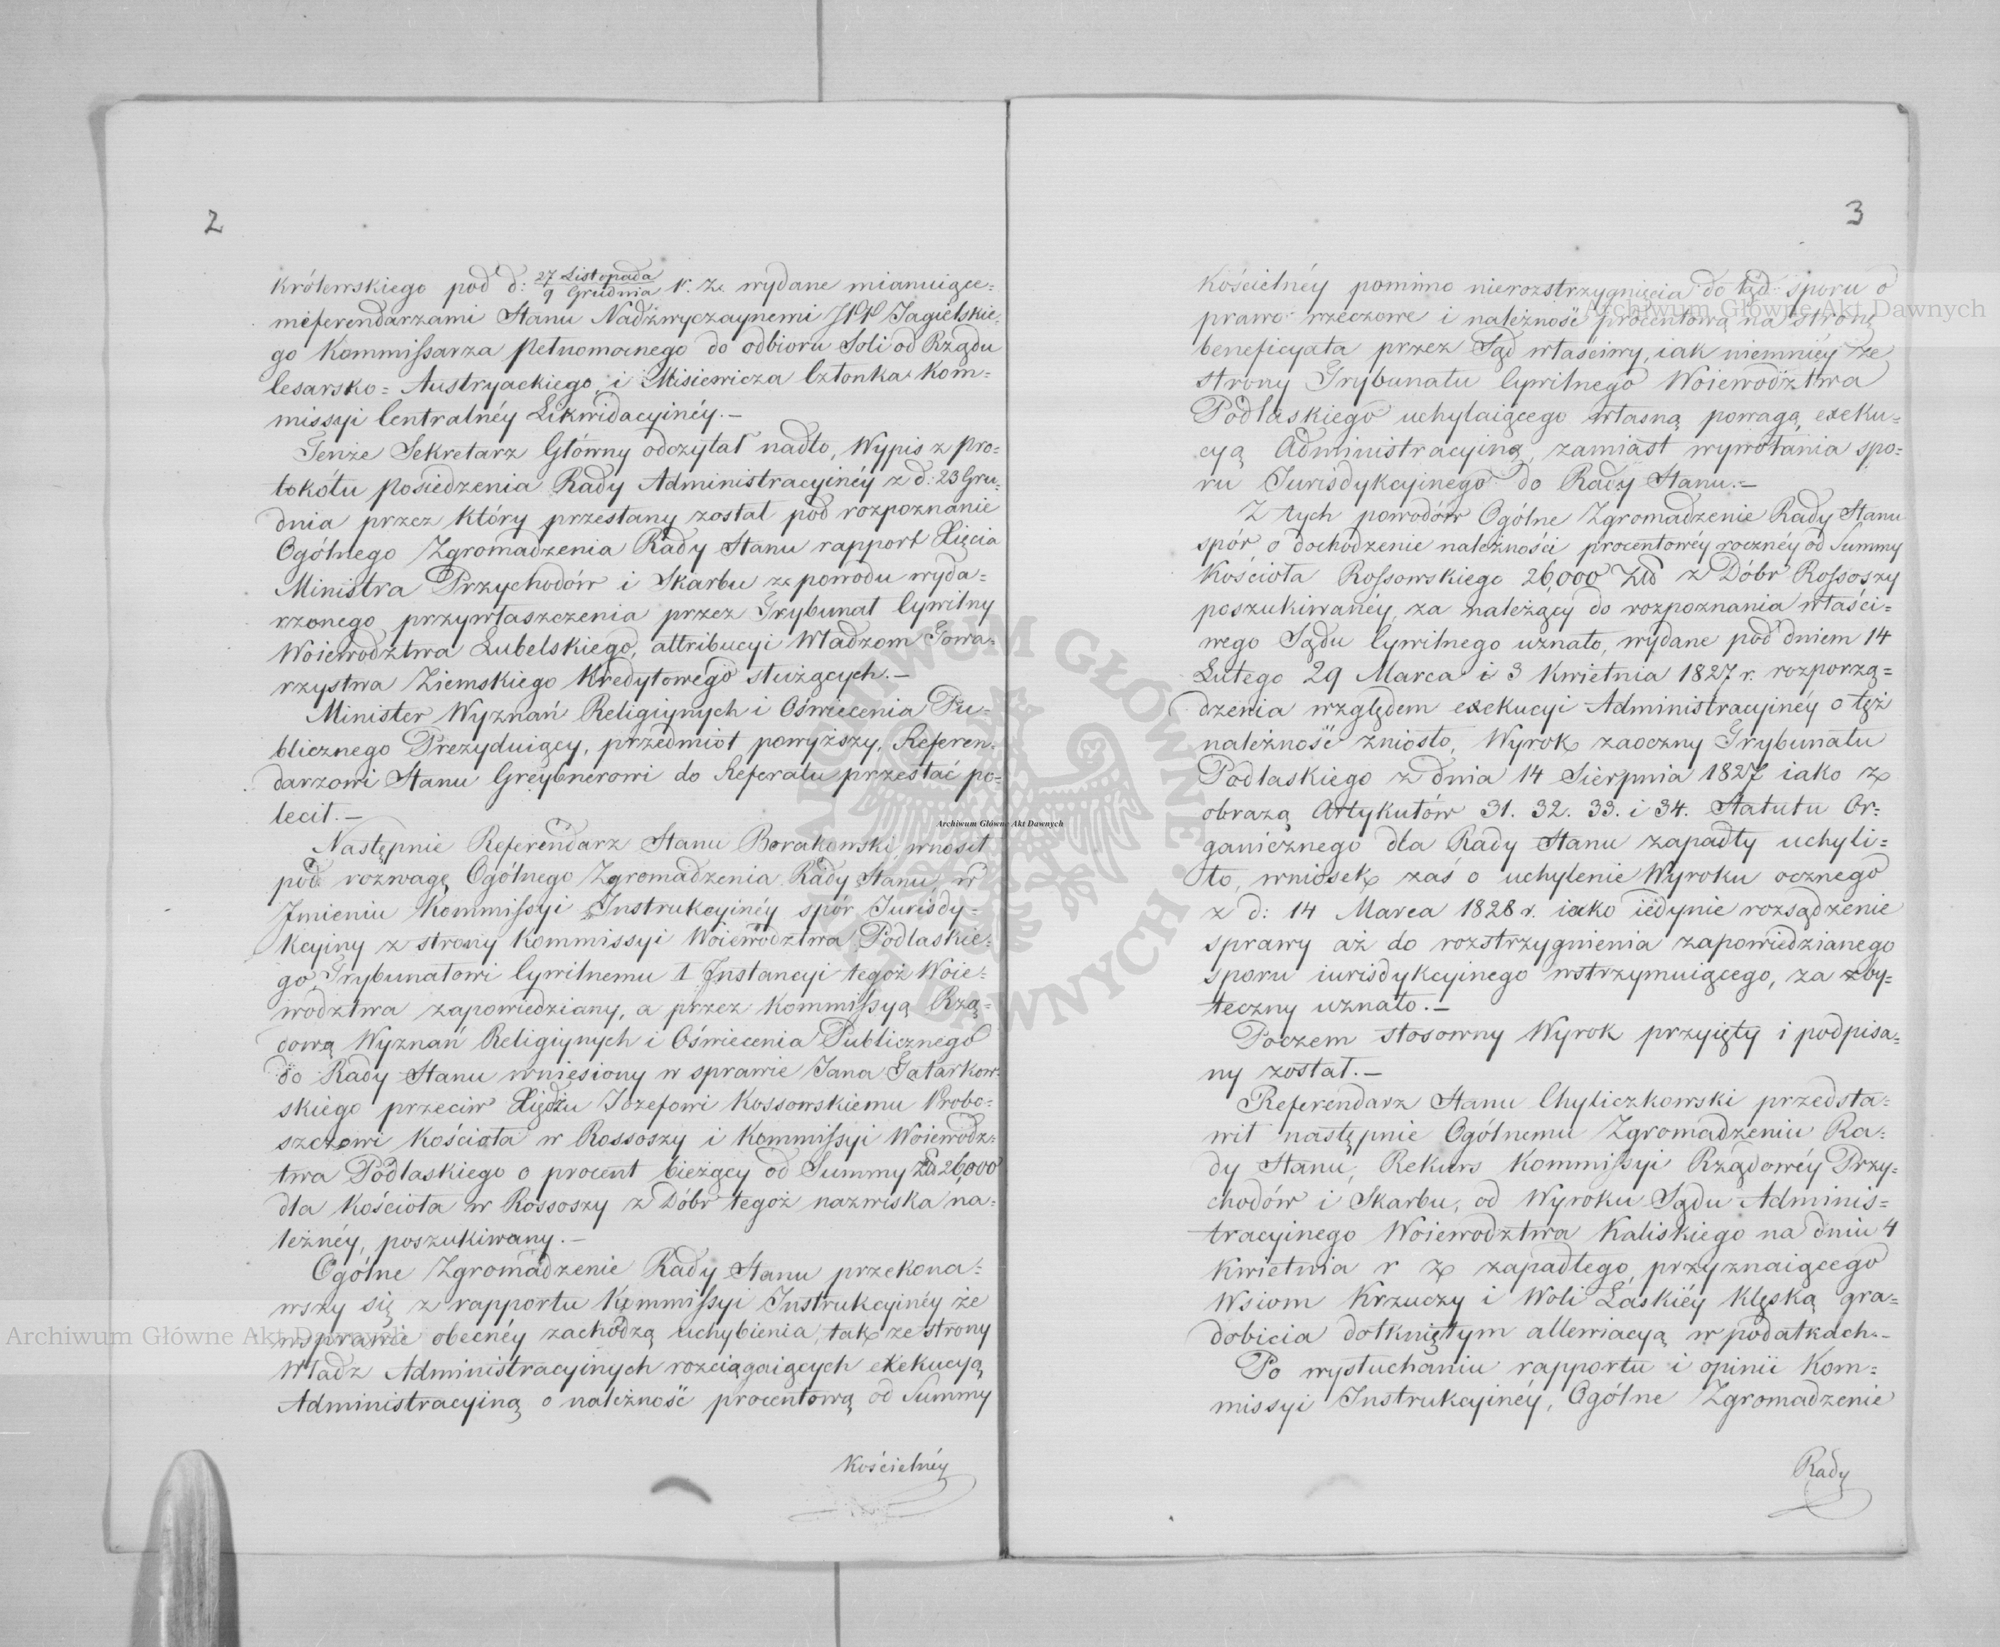 2
Królewskiego pod d: 27 Listopada / 9 Grudnia r. z. wydane mianuiące
Referendarzami Stanu Nadzwyczaynemi JPP Jagielskie-
go Kommissarza Pełnomocnego do odbioru Soli od Rządu
Cesarsko=Austryackiego, i Misiewicza Członka Kom=
missyi Centralnéy Likwidacyinéy.—
Tenże Sekretarz Główny odczytał nadto, Wypis z Pro-
tokółu Posiedzenia Rady Administracyinéy z d: 23 Gru-
dnia przez który przesłany został pod rozpoznanie
Ogólnego Zgromadzenia Rady Stanu rapport Xięcia
Ministra Przychodów i Skarbu z powodu wyda=
rzonego przywłaszczenia przez Trybunał Cywilny
Woiewództwa Lubelskiego, attribucyi Władzom Towa-
rzystwa Ziemskiego Kredytowego służących.—
Minister Wyznań Religiynych i Oświecenia Pu-
blicznego Prezyduiący, przedmiot powyższy, Referen-
darzowi Stanu Greybnerowi do Referatu przesłać po-
lecił.—
Następnie Referendarz Stanu Borakowski, wnosił
pod rozwagę Ogólnego Zgromadzenia Rady Stanu, w
Jmieniu Kommissyi Instrukcyinéy spór Jurisdy-
kcyiny z strony Kommissyi Woiewództwa Podlaskie-
go Trybunałowi Cywilnemu I Jnstancyi tegoż Woie-
wodztwa zapowiedziany, a przez Kommissyą Rzą-
dową Wyznań Religiynych i Oświecenia Publicznego
do Rady Stanu wniesiony w sprawie Jana Tatarkow-
skiego przeciw Xiędzu Józefowi Kossowskiemu Probo-
szczowi Kościoła w Rossoszy i Kommissyi Woiewódz-
twa Podlaskiego o procent bieżący od Summy Złd 26,000
dla Kościoła w Rossoszy z Dóbr tegoż nazwiska na-
leżnéy, poszukiwany.—
Ogólne Zgromadzenie Rady Stanu przekona-
wszy się z rapportu Kommissyi Instrukcyinéy że
wsprawie obecnéy zachodzą uchybienia, tak ze strony
Władz Administracyinych rozciągaiących exekucyą
Administracyiną o należność procentową od Summy
Kościelnéy
3
Kościelnéy pomimo nierozstrzygnięcia do tąd sporu o
prawo rzeczowe i należność procentową na stronę
beneficyata przez Sąd właściwy, iak niemniéy ze
strony Trybunału Cywilnego Woiewództwa
Podlaskiego uchylaiącego własną powagą, exeku-
cyą Administracyiną, zamiast wywołania spo-
ru Jurisdykcyinego do Rady Stanu.—
Z tych powodów Ogólne Zgromadzenie Rady Stanu
spór o dochodzenie należności procentowéy rocznéy od Summy
Kościoła Rossowskiego 26,000 Złd z Dóbr Rossoszy
poszukiwanéy, za należący do rozpoznania właści-
wego Sądu Cywilnego uznało, wydane pod dniem 14
Lutego 29 Marca i 3 Kwietnia 1827 r. rozporzą=
dzenia względem exekucyi Administracyinéy o tęż
należność zniosło, Wyrok zaoczny Trybunału
Podlaskiego z dnia 14 Sierpnia 1827 iako z
obrazą Artykułów 31. 32. 33. i 34. Statutu Or-
ganicznego dla Rady Stanu zapadły uchyli=
ło, wniosek zaś o uchylenie Wyroku ocznego
z d: 14 Marca 1828 r. iako iedynie rozsądzenie
sprawy aż do rozstrzygnienia zapowiedzianego
sporu iurisdykcyinego wstrzymuiącego, za zby-
teczny uznało.—
Poczem stosowny Wyrok przyięty i podpisa-
ny został.—
Referendarz Stanu Chyliczkowski przedsta-
wił następnie Ogólnemu Zgromadzeniu Ra-
dy Stanu, Rekurs Kommissyi Rządowéy Przy-
chodów i Skarbu, od Wyroku Sądu Adminis-
tracyinego Woiewodztwa Kaliskiego na dniu 4
Kwietnia r z zapadłego, przyznaiącego
Wsiom Krzuczy i Woli Łaskiéy klęską gra-
dobicia dotkniętym allewiacyą w podatkach.—
Po wysłuchaniu rapportu i opinii Kom-
missyi Instrukcyinéy, Ogólne Zgromadzenie
Rady
Archiwum Główne Akt Dawnych
Archiwum Główne Akt Dawnych
Archiwum Główne Akt Dawnych
ARCHIWUM GŁÓWNE AKT DAWNYCH